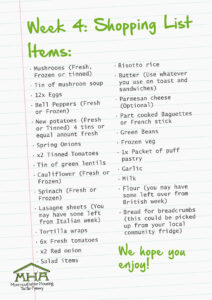 Week 4: Shopping List
Items:
· Mushrooms (Fresh,
Frozen or tinned)
· Tin of mushroom soup
· 12x Eggs
· Bell Peppers (Fresh
or Frozen)
· New potatoes (Fresh
or Tinned) 4 tins or
equal amount fresh
· Spring Onions
· x2 Tinned Tomatoes
· Tin of green lentils
· Cauliflower (Fresh or
Frozen)
· Spinach (Fresh or
Frozen)
· Lasagne sheets (You
may have some left
from Italian week)
· Tortilla wraps
· 6x Fresh tomatoes
· x2 Red onion
· Salad items
· Risotto rice
· Butter (Use whatever
you use on toast and
sandwiches)
· Parmesan cheese
(Optional)
· Part cooked Baguettes
or French stick
· Green Beans
· Frozen veg
· 1x Packet of puff
pastry
· Garlic
· Milk
· Flour (you may have
some left over from
British week)
· Bread for breadcrumbs
(this could be picked
up from your local
community fridge)
We hope you
enjoy!
MHA